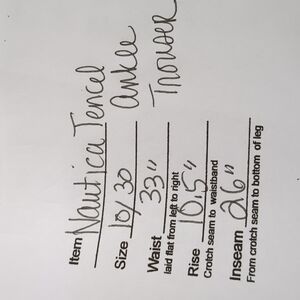 Item Nautica Tencel
Size 10/30 Ankle
Waist 33" Trouser
laid flat from left to right
Rise 10.5"
Crotch seam to waistband
Inseam 26"
From crotch seam to bottom of leg